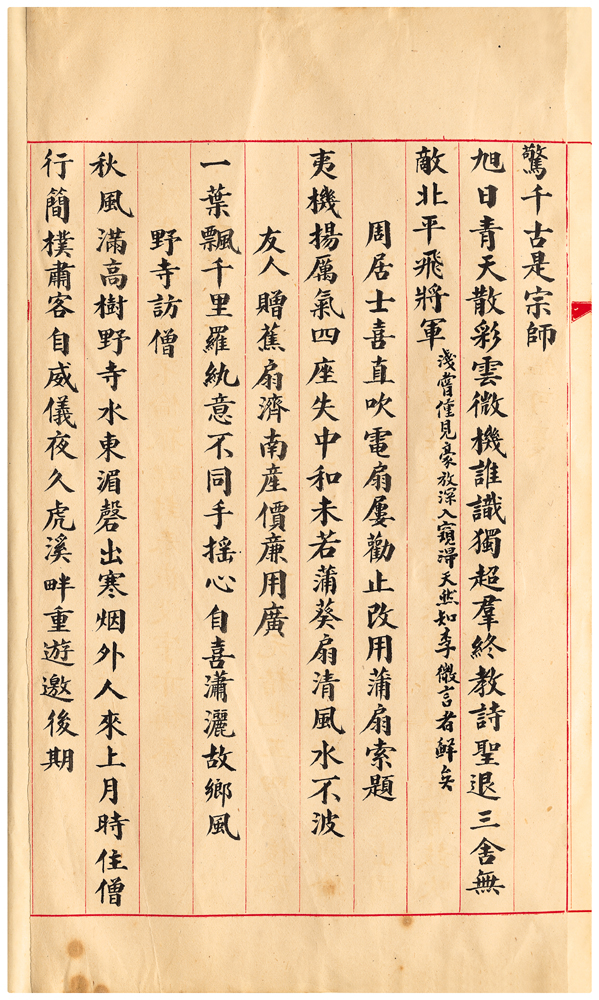 驚千古是宗師
旭日青天散彩雲微機誰識獨超羣終教詩聖退三舍無
敵北平飛將軍淺嘗僅見豪放深入窺得天然知李微言者鮮矣
周居士喜直吹電扇屢勸止改用蒲扇索題
夷機揚厲氣四座失中和未若蒲葵扇清風水不波
友人贈蕉扇濟南產價廉用廣
一葉飄千里羅紈意不同手搖心自喜瀟灑故鄉風
野寺訪僧
秋風滿高樹野寺水東湄磬出寒烟外人來上月時住僧
行簡樸肅客自威儀夜久虎溪畔重遊邀後期